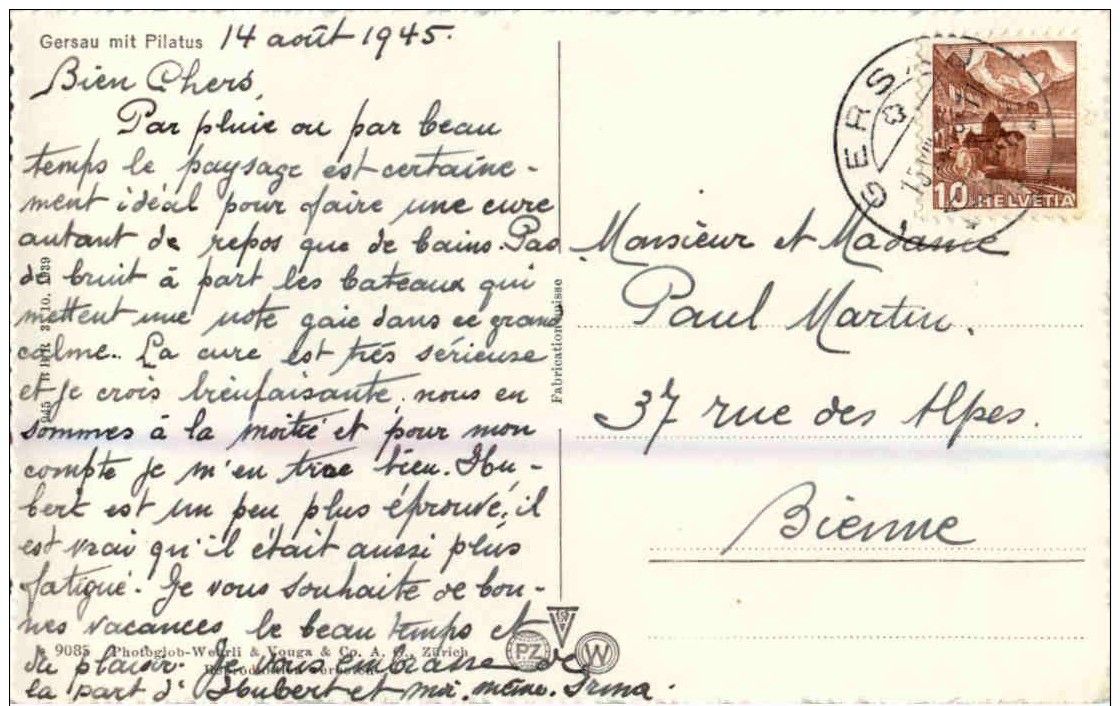 Gersau mit Pilatus 14 août 1945.
Bien Chers,
Par pluie ou par beau
temps le paysage est certaine-
ment idéal pour faire une cure
autant de repos que de bains. Pas
de bruit à part les bateaux qui
mettent une note gaie dans ce grand
calme.. La cure est très sérieuse
et je crois bienfaisante, nous en
sommes à la moitié et pour mon
compte je m'en trae bien. Hu-
bert est un peu plus éprouvé, il
est vrai qu'il était aussi plus
fatigué. Je vous souhaite de bon-
nes vacances, le beau temps et
du plaisir. Je vous embrasse de
la part d'Hubert et moi-même. Irma.
9085 Photoglob-Wehrli & Vouga & Co. A. G., Zürich
Fabrication suisse
PZ
W
GERSAU
10 HELVETIA
Monsieur et Madame
Paul Martin.
37 rue des Alpes.
Bienne